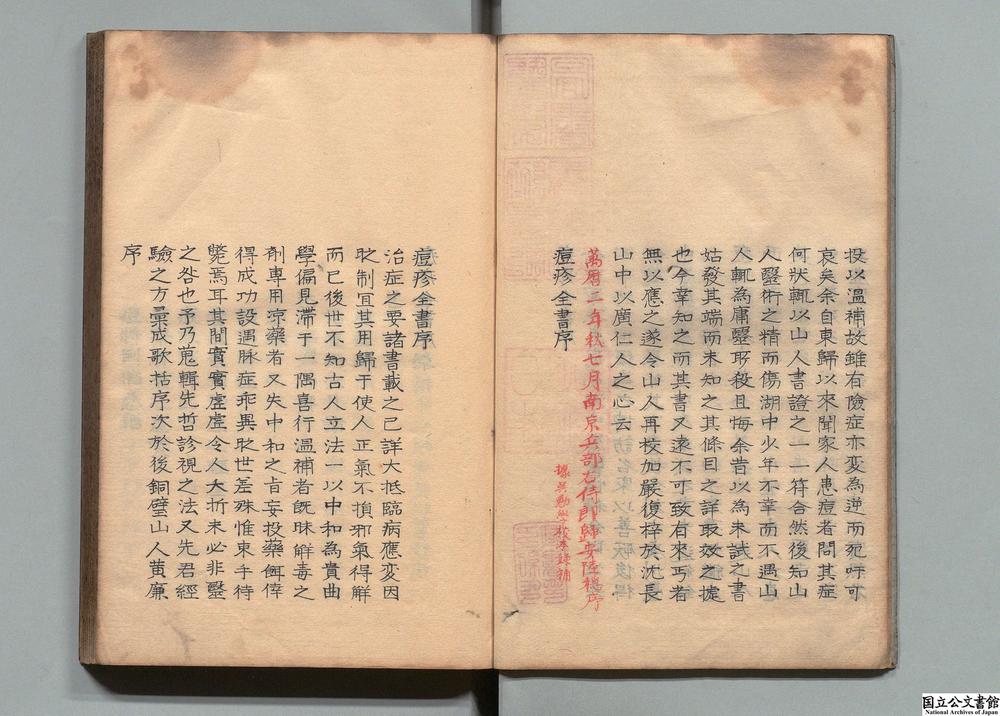 投以溫補故雖有險症亦変為逆而死吁可
哀矣余自東歸以來聞家人患痘者問其症
何狀輒以山人書證之一一符合然後知山
人醫術之精而傷湖中少年不幸而不遇山
人輒為庸醫所殺且悔余昔以為未試之書
姑發其端而未知之其條目之詳取效之捷
也今幸知之而其書又遠不可致有來丐者
無以應之遂令山人再校加嚴復梓於沈長
山中以廣仁人之心云
萬曆二年秋七月南京兵部右侍郎歸安陸穩序
痘疹全書序
痘疹全書序
治症之要諸書載之已詳大抵臨病應変因
時制宜其用歸于使人正氣不損邪氣得解
而已後世不知古人立法一以中和為貴曲
學偏見滯于一隅喜行溫補者既昧解毒之
劑專用凉藥者又失中和之旨妄投藥餌倖
得成功設遇脉症乖異時世差殊惟束手待
斃焉耳其間實實虛虛令人大折未必非醫
之咎也予乃蒐輯先哲診視之法又先君經
驗之方彙成歌括序次於後銅壁山人黃廉
序
国立公文書館
National Archives of Japan